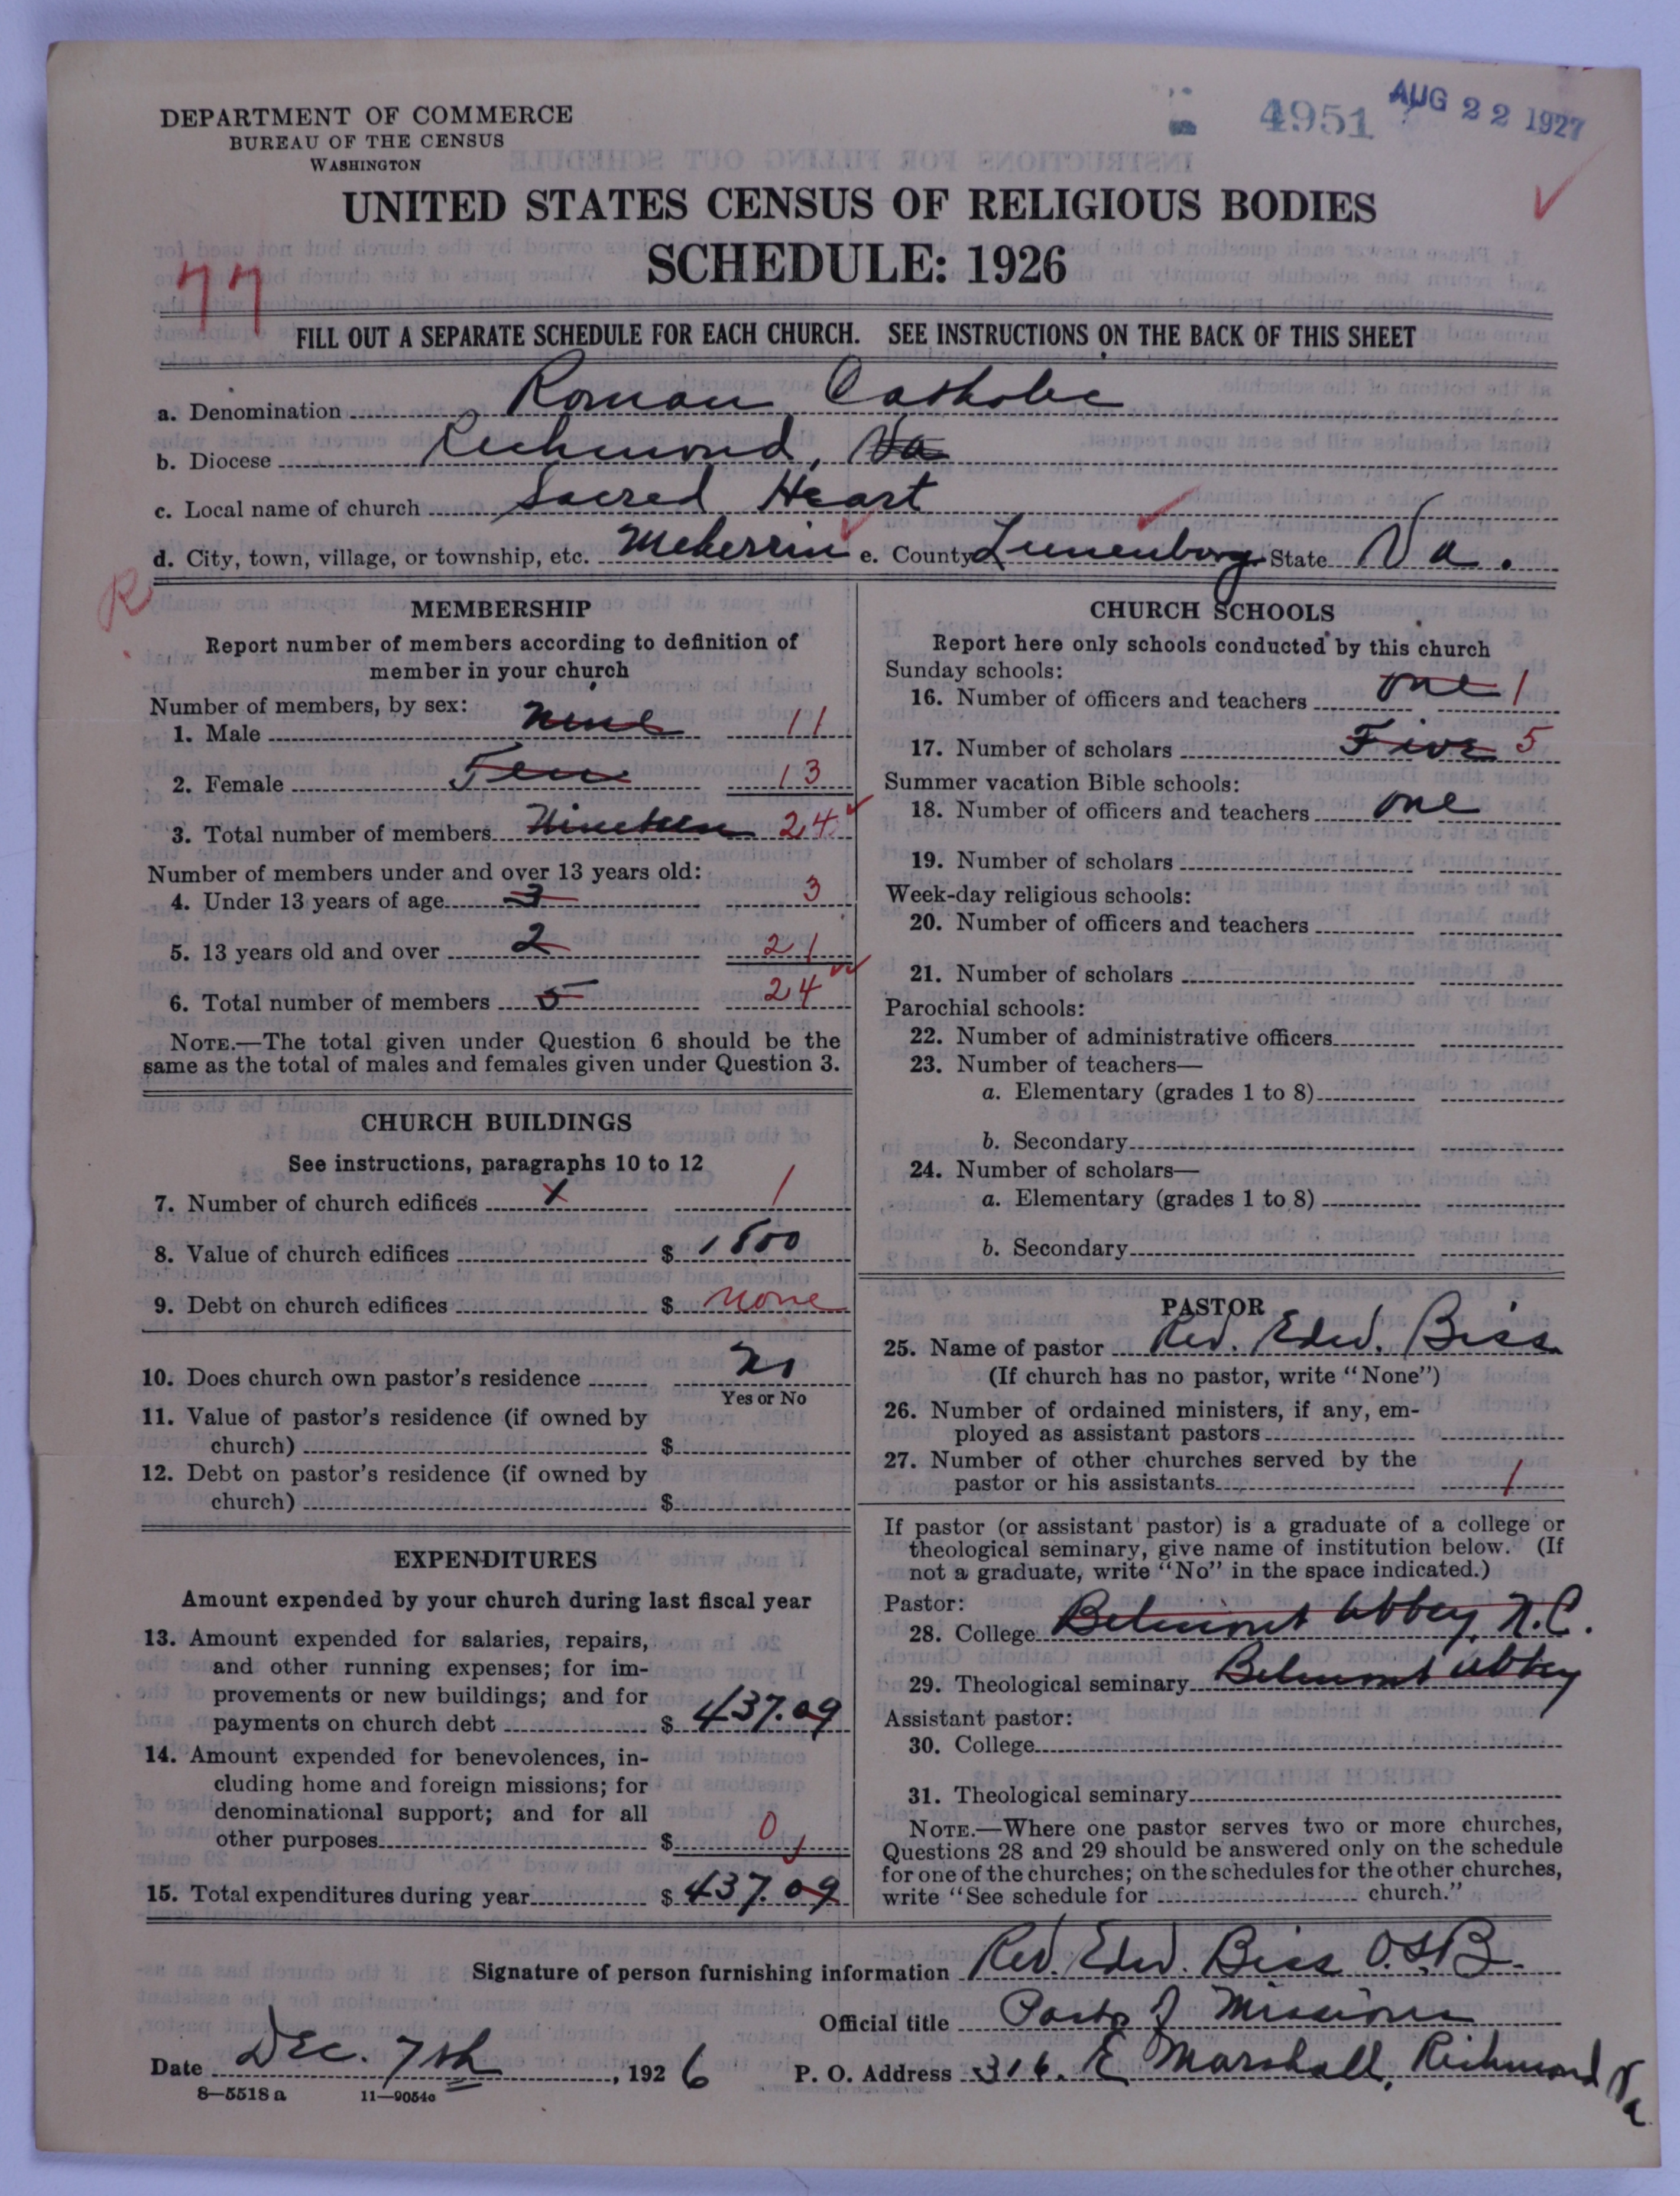 4951 AUG 22 1927
DEPARTMENT OF COMMERCE
BUREAU OF THE CENSUS
WASHINGTON
UNITED STATES CENSUS OF RELIGIOUS BODIES
SCHEDULE: 1926
77
FILL OUT A SEPARATE SCHEDULE FOR EACH CHURCH. SEE INSTRUCTIONS ON THE BACK OF THIS SHEET
a. Denomination Roman Catholic
b. Diocese Richmond, Va
c. Local name of church Sacred Heart
d. City, town, village, or township, etc. Meherrin e. County Lunenburg State Va.
R
MEMBERSHIP
Report number of members according to definition of
member in your church
Number of members, by sex:
1. Male Nine 11
2. Female Ten 13
3. Total number of members Nineteen 24
Number of members under and over 13 years old:
4. Under 13 years of age 3 3
5. 13 years old and over 2 21
6. Total number of members 5 24
NOTE.—The total given under Question 6 should be the
same as the total of males and females given under Question 3.
CHURCH BUILDINGS
See instructions, paragraphs 10 to 12
7. Number of church edifices 1 1
8. Value of church edifices $ 1800
9. Debt on church edifices $ none
10. Does church own pastor's residence No
Yes or No
11. Value of pastor's residence (if owned by
church) $
12. Debt on pastor's residence (if owned by
church) $
EXPENDITURES
Amount expended by your church during last fiscal year
13. Amount expended for salaries, repairs,
and other running expenses; for im-
provements or new buildings; and for
payments on church debt $ 437.09
14. Amount expended for benevolences, in-
cluding home and foreign missions; for
denominational support; and for all
other purposes $ 0
15. Total expenditures during year $ 437.09
CHURCH SCHOOLS
Report here only schools conducted by this church
Sunday schools:
16. Number of officers and teachers one 1
17. Number of scholars Five 5
Summer vacation Bible schools:
18. Number of officers and teachers one
19. Number of scholars
Week-day religious schools:
20. Number of officers and teachers
21. Number of scholars
Parochial schools:
22. Number of administrative officers
23. Number of teachers—
a. Elementary (grades 1 to 8)
b. Secondary
24. Number of scholars—
a. Elementary (grades 1 to 8)
b. Secondary
PASTOR
25. Name of pastor Rev. Edw. Biss
(If church has no pastor, write "None")
26. Number of ordained ministers, if any, em-
ployed as assistant pastors
27. Number of other churches served by the
pastor or his assistants 1
If pastor (or assistant pastor) is a graduate of a college or
theological seminary, give name of institution below. (If
not a graduate, write "No" in the space indicated.)
Pastor:
28. College Belmont Abbey, N.C.
29. Theological seminary Belmont Abbey
Assistant pastor:
30. College
31. Theological seminary
NOTE.—Where one pastor serves two or more churches,
Questions 28 and 29 should be answered only on the schedule
for one of the churches; on the schedules for the other churches,
write "See schedule for church."
Signature of person furnishing information Rev. Edw. Biss O.S.B.
Official title Pastor of Missions
Date Dec. 7th, 1926 P. O. Address 316 E Marshall, Richmond Va
8—5518 a 11—9054a